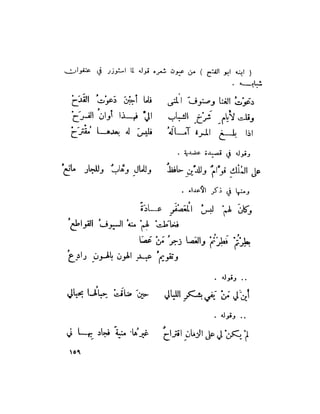 ( ابنه ابو الفتح ) من عيون شعره قوله لما استوزر في عنفوان
شبابـــه .
دعوتُ الغنا وصنوفَ المنى فلما أجبْنَ دعوتُ القَدَحْ
وقلت لأيام شَرْخِ الشباب اليَّ فهـذا أوانُ الفـرَحْ
اذا بلـــغ المـرء آمـــالَهُ فليـس له بعدهـــا مُقْتَرَحْ
وقوله في قصيدة عضدية .
على المُلْكِ قوّامٌ وللدِّينِ حافظٌ وللمالِ وهّابٌ وللجارِ مانعُ
ومنها في ذكر الأعداء .
وكانَ لهمْ لبسُ المُعَصْفَرِ عـــادةً
فخاطتْ لهمْ منهُ السيوفُ القواطعُ
بطِرْتُمْ فَطِرْتُمْ والعَصا زجرُ مَنْ عَصَا
وتقويمُ عبـدِ الهونِ بالهـونِ رادعُ
.. وقوله .
أينَ لي مَنْ يَفي بشكرِ الليالي حينَ ضافَتْ حبالَها بحبالي
.. وقوله .
لمْ يـكنْ لي على الزمانِ اقتراحٌ غيرُها منيةً فجاد بهـــا لي
١٥٩